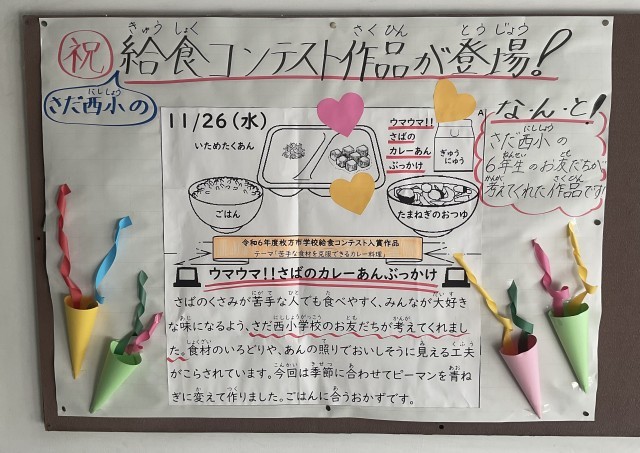 祝
きゅうしょく さくひん とうじょう
給食コンテスト作品が登場!
にししょう
さだ西小の
な・ん・と!
にししょう
さだ西小の
ねんせい とも
6年生のお友だちが
かんが さくひん
考えてくれた作品です!
11/26(水)
いためたくあん
ウマウマ!!
さばの
カレーあん
ぶっかけ
ぎゅう
にゅう
ごはん
たまねぎのおつゆ
令和6年度枚方市学校給食コンテスト入賞作品
テーマ「苦手な食材を克服できるカレー料理」
ウマウマ!!さばのカレーあんぶっかけ
にがて ひと た だいす
さばのくさみが苦手な人でも食べやすく、みんなが大好き
あじ にししょうがっこう とも かんが
な味になるよう、さだ西小学校のお友だちが考えてくれまし
しょくざい て み くふう
た。食材のいろどりや、あんの照りでおいしそうに見える工夫
こんかい きせつ あ あお
がこらされています。今回は季節に合わせてピーマンを青ね
か つく あ
ぎに変えて作りました。ごはんに合うおかずです。